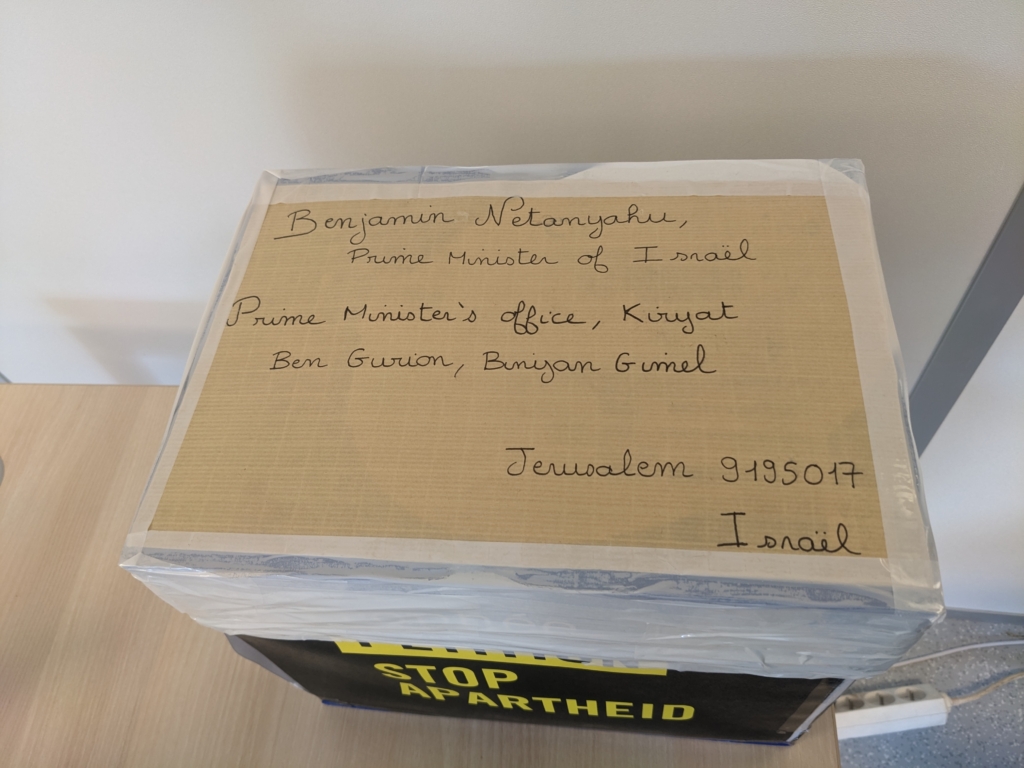 Benjamin Netanyahu,
Prime Minister of Israël
Prime Minister's office, Kiryat
Ben Gurion, Binyan Gimel
Jerusalem 9195017
Israël
STOP
APARTHEID